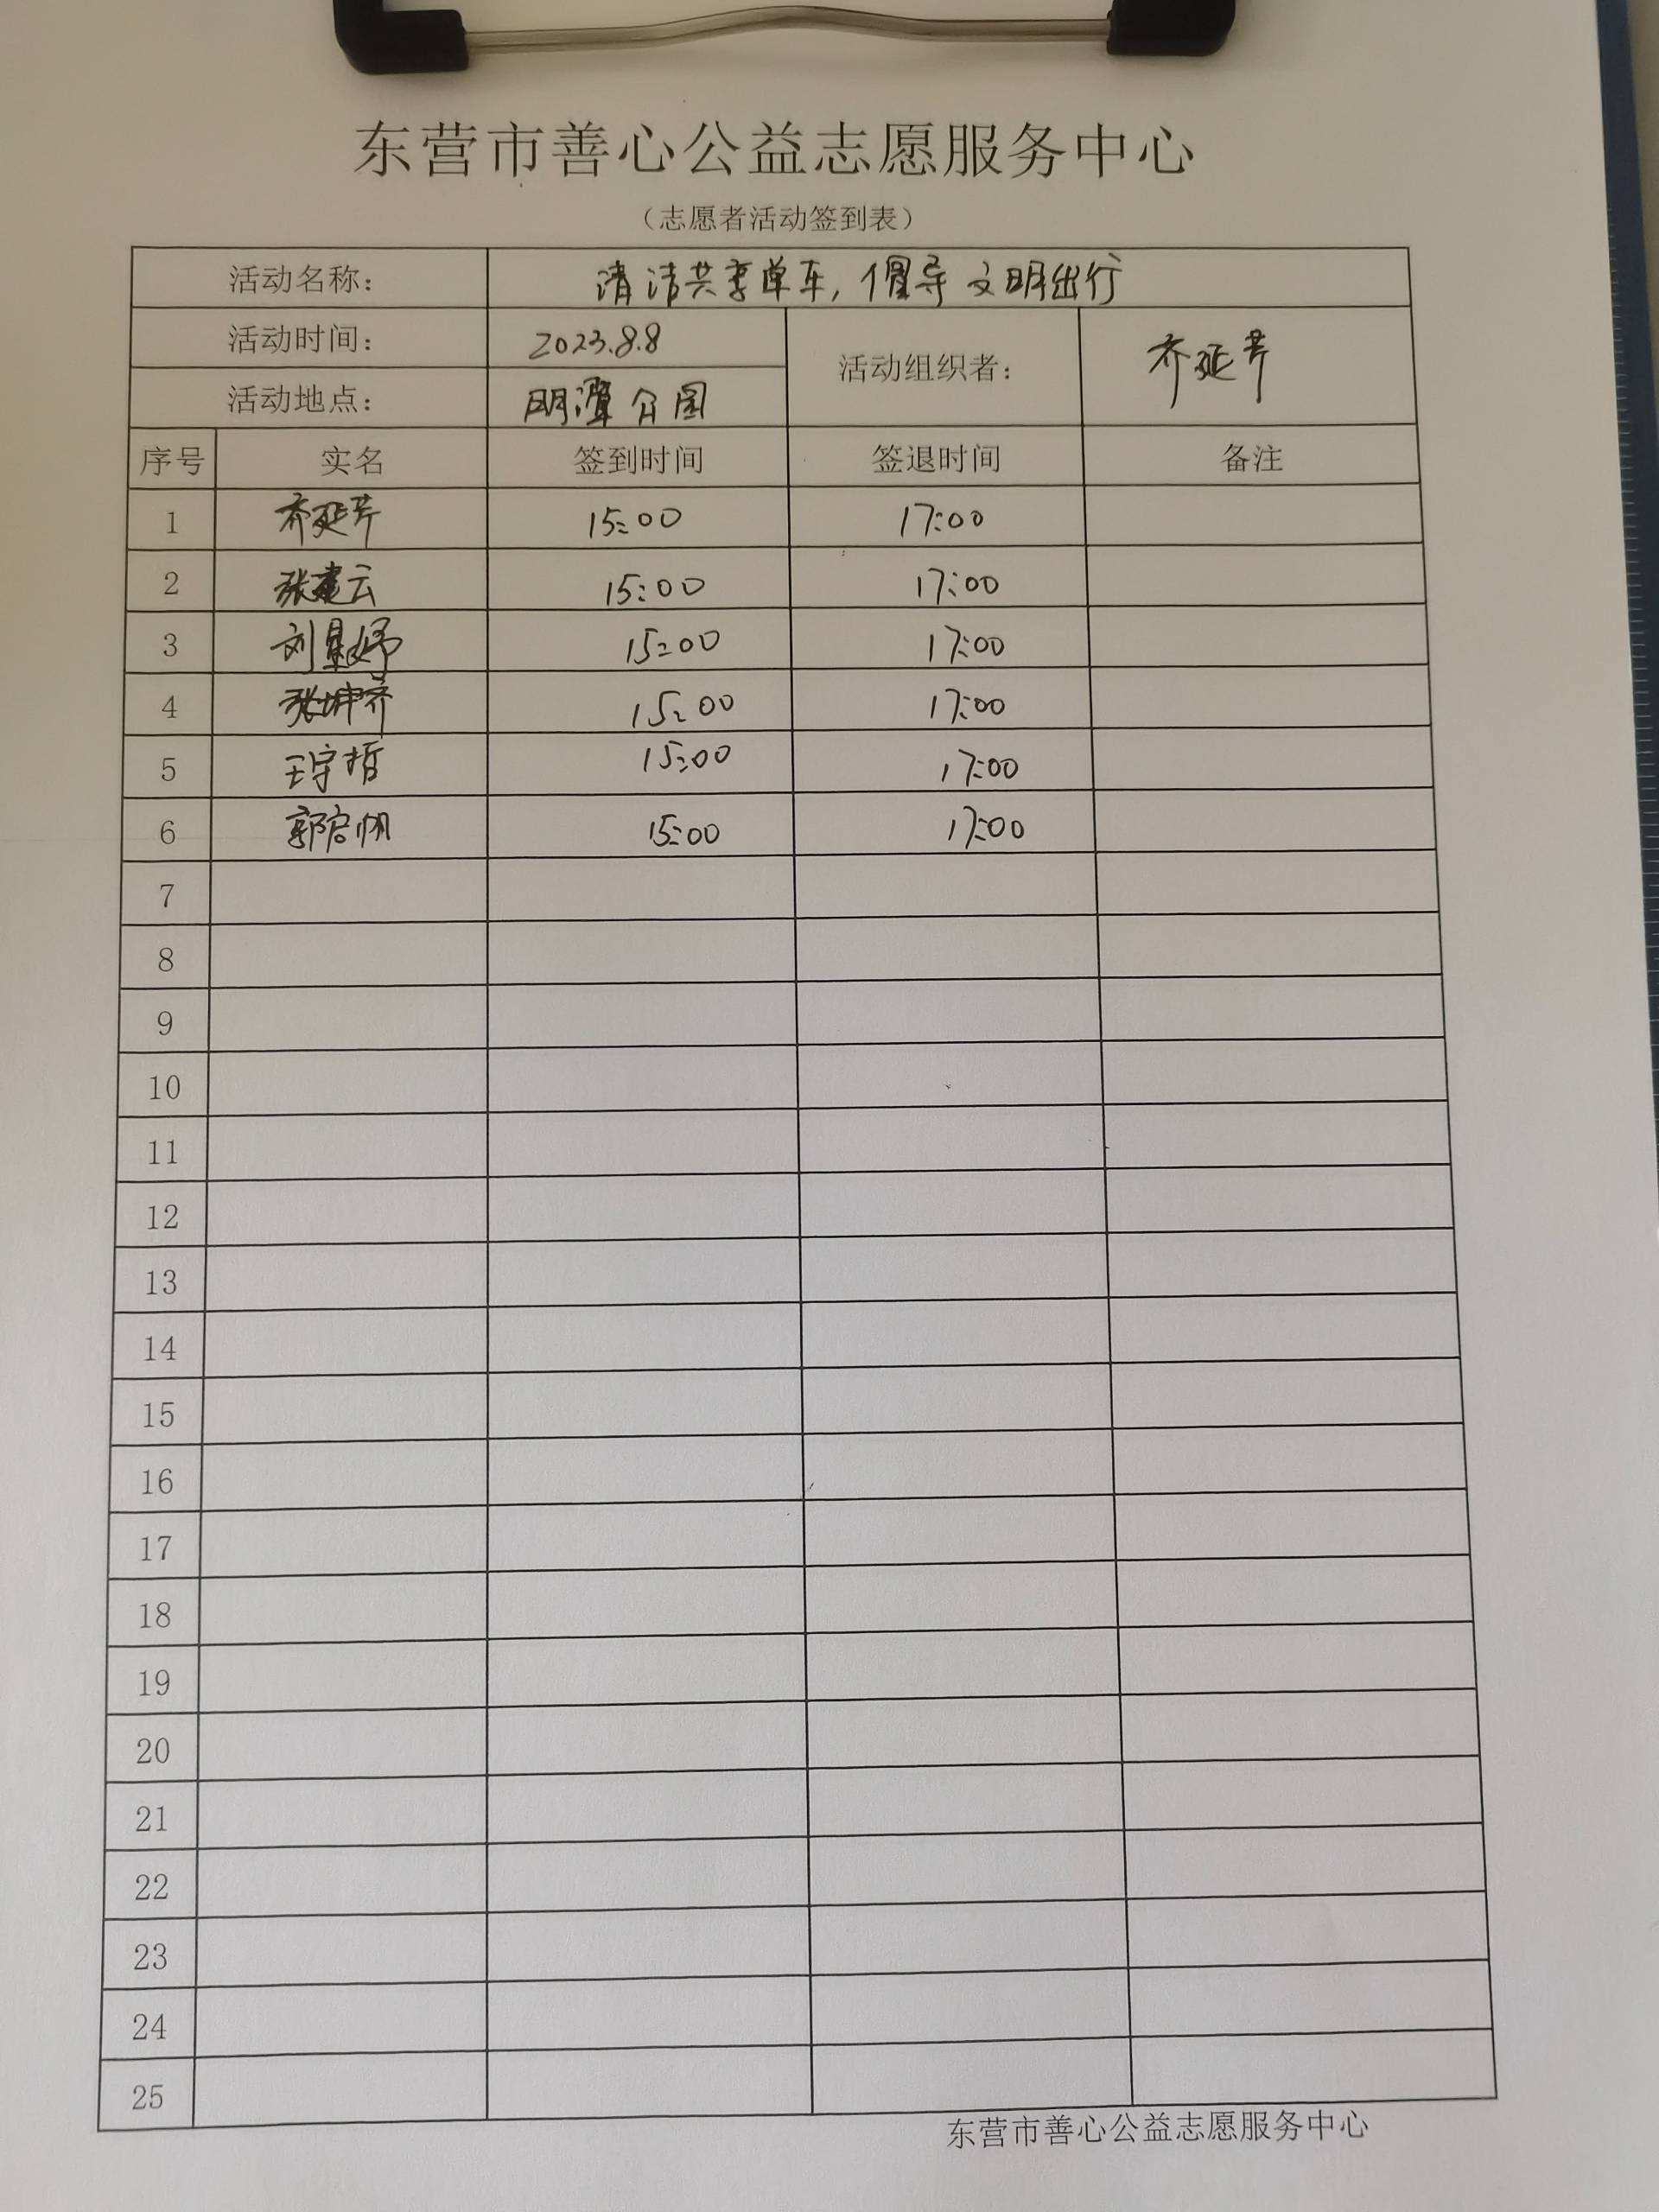 东营市善心公益志愿服务中心
（志愿者活动签到表）
活动名称： 清洁共享单车，倡导文明出行
活动时间： 2023.8.8 活动组织者： 齐延芹
活动地点： 明潭公园
序号 实名 签到时间 签退时间 备注
1 齐延芹 15:00 17:00
2 张建云 15:00 17:00
3 刘星妤 15:00 17:00
4 张坤齐 15:00 17:00
5 王宇哲 15:00 17:00
6 郭启帆 15:00 17:00
7
8
9
10
11
12
13
14
15
16
17
18
19
20
21
22
23
24
25
东营市善心公益志愿服务中心